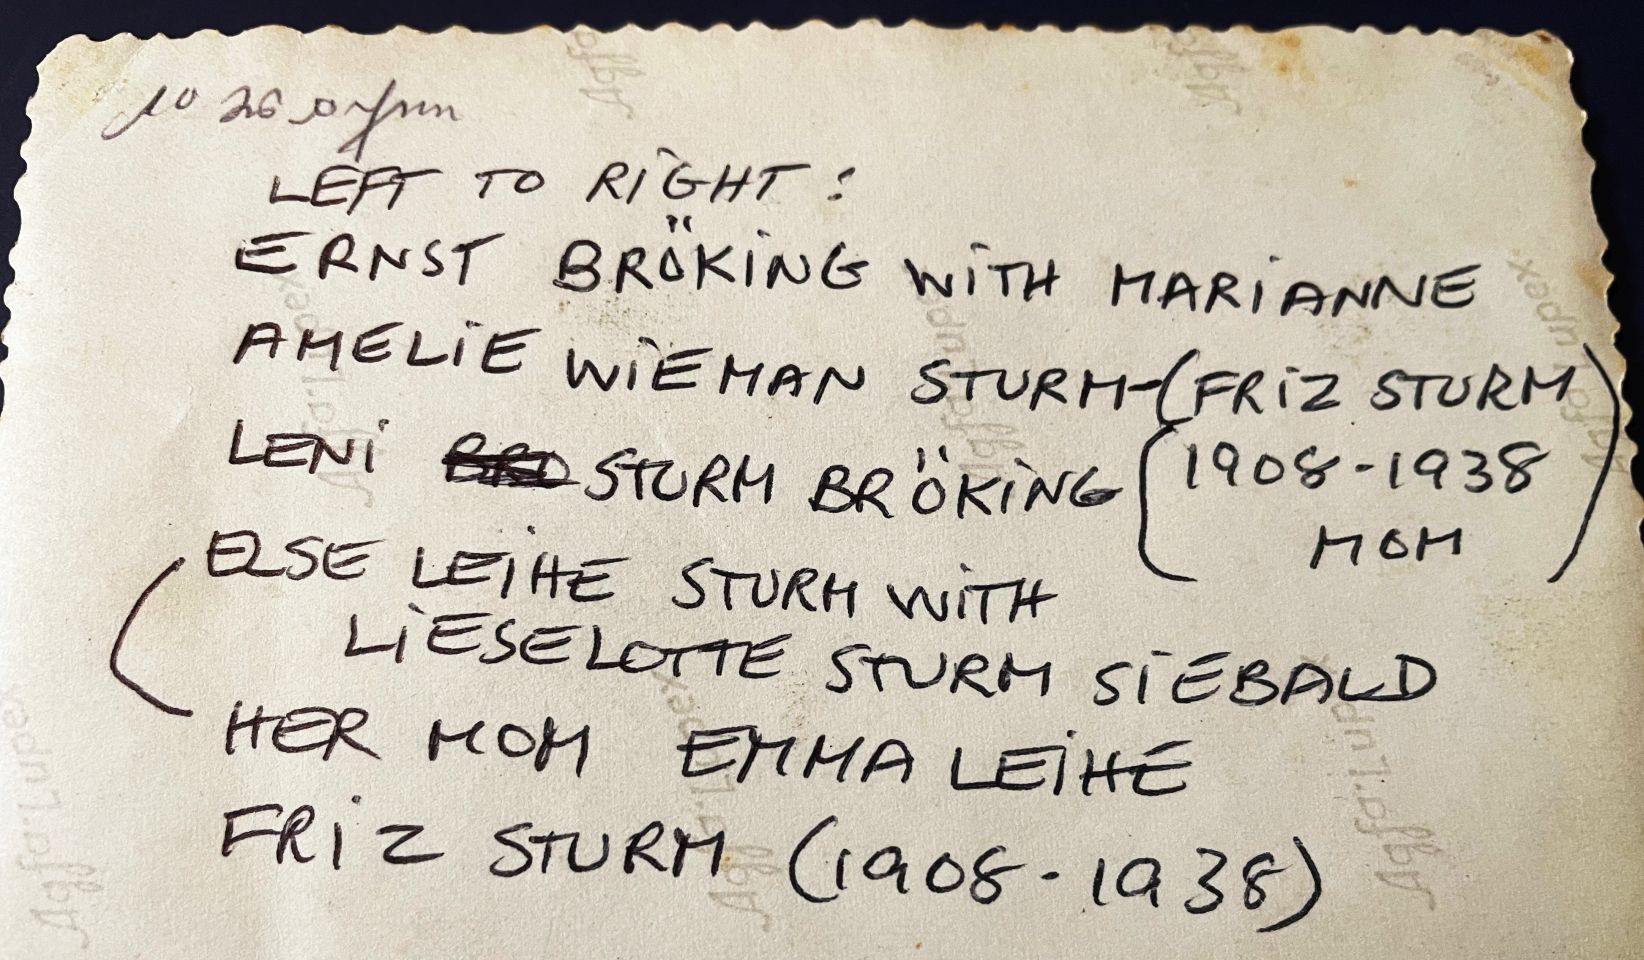 LEFT TO RIGHT:
ERNST BRÖKING WITH MARIANNE
AMELIE WIEMAN STURM-(FRIZ STURM
LENI STURM BRÖKING (1908-1938
MOM)
ELSE LEIHE STURM WITH
LIESELOTTE STURM SIEBALD
HER MOM EMMA LEIHE
FRIZ STURM (1908-1938)
Agfa-Lupex